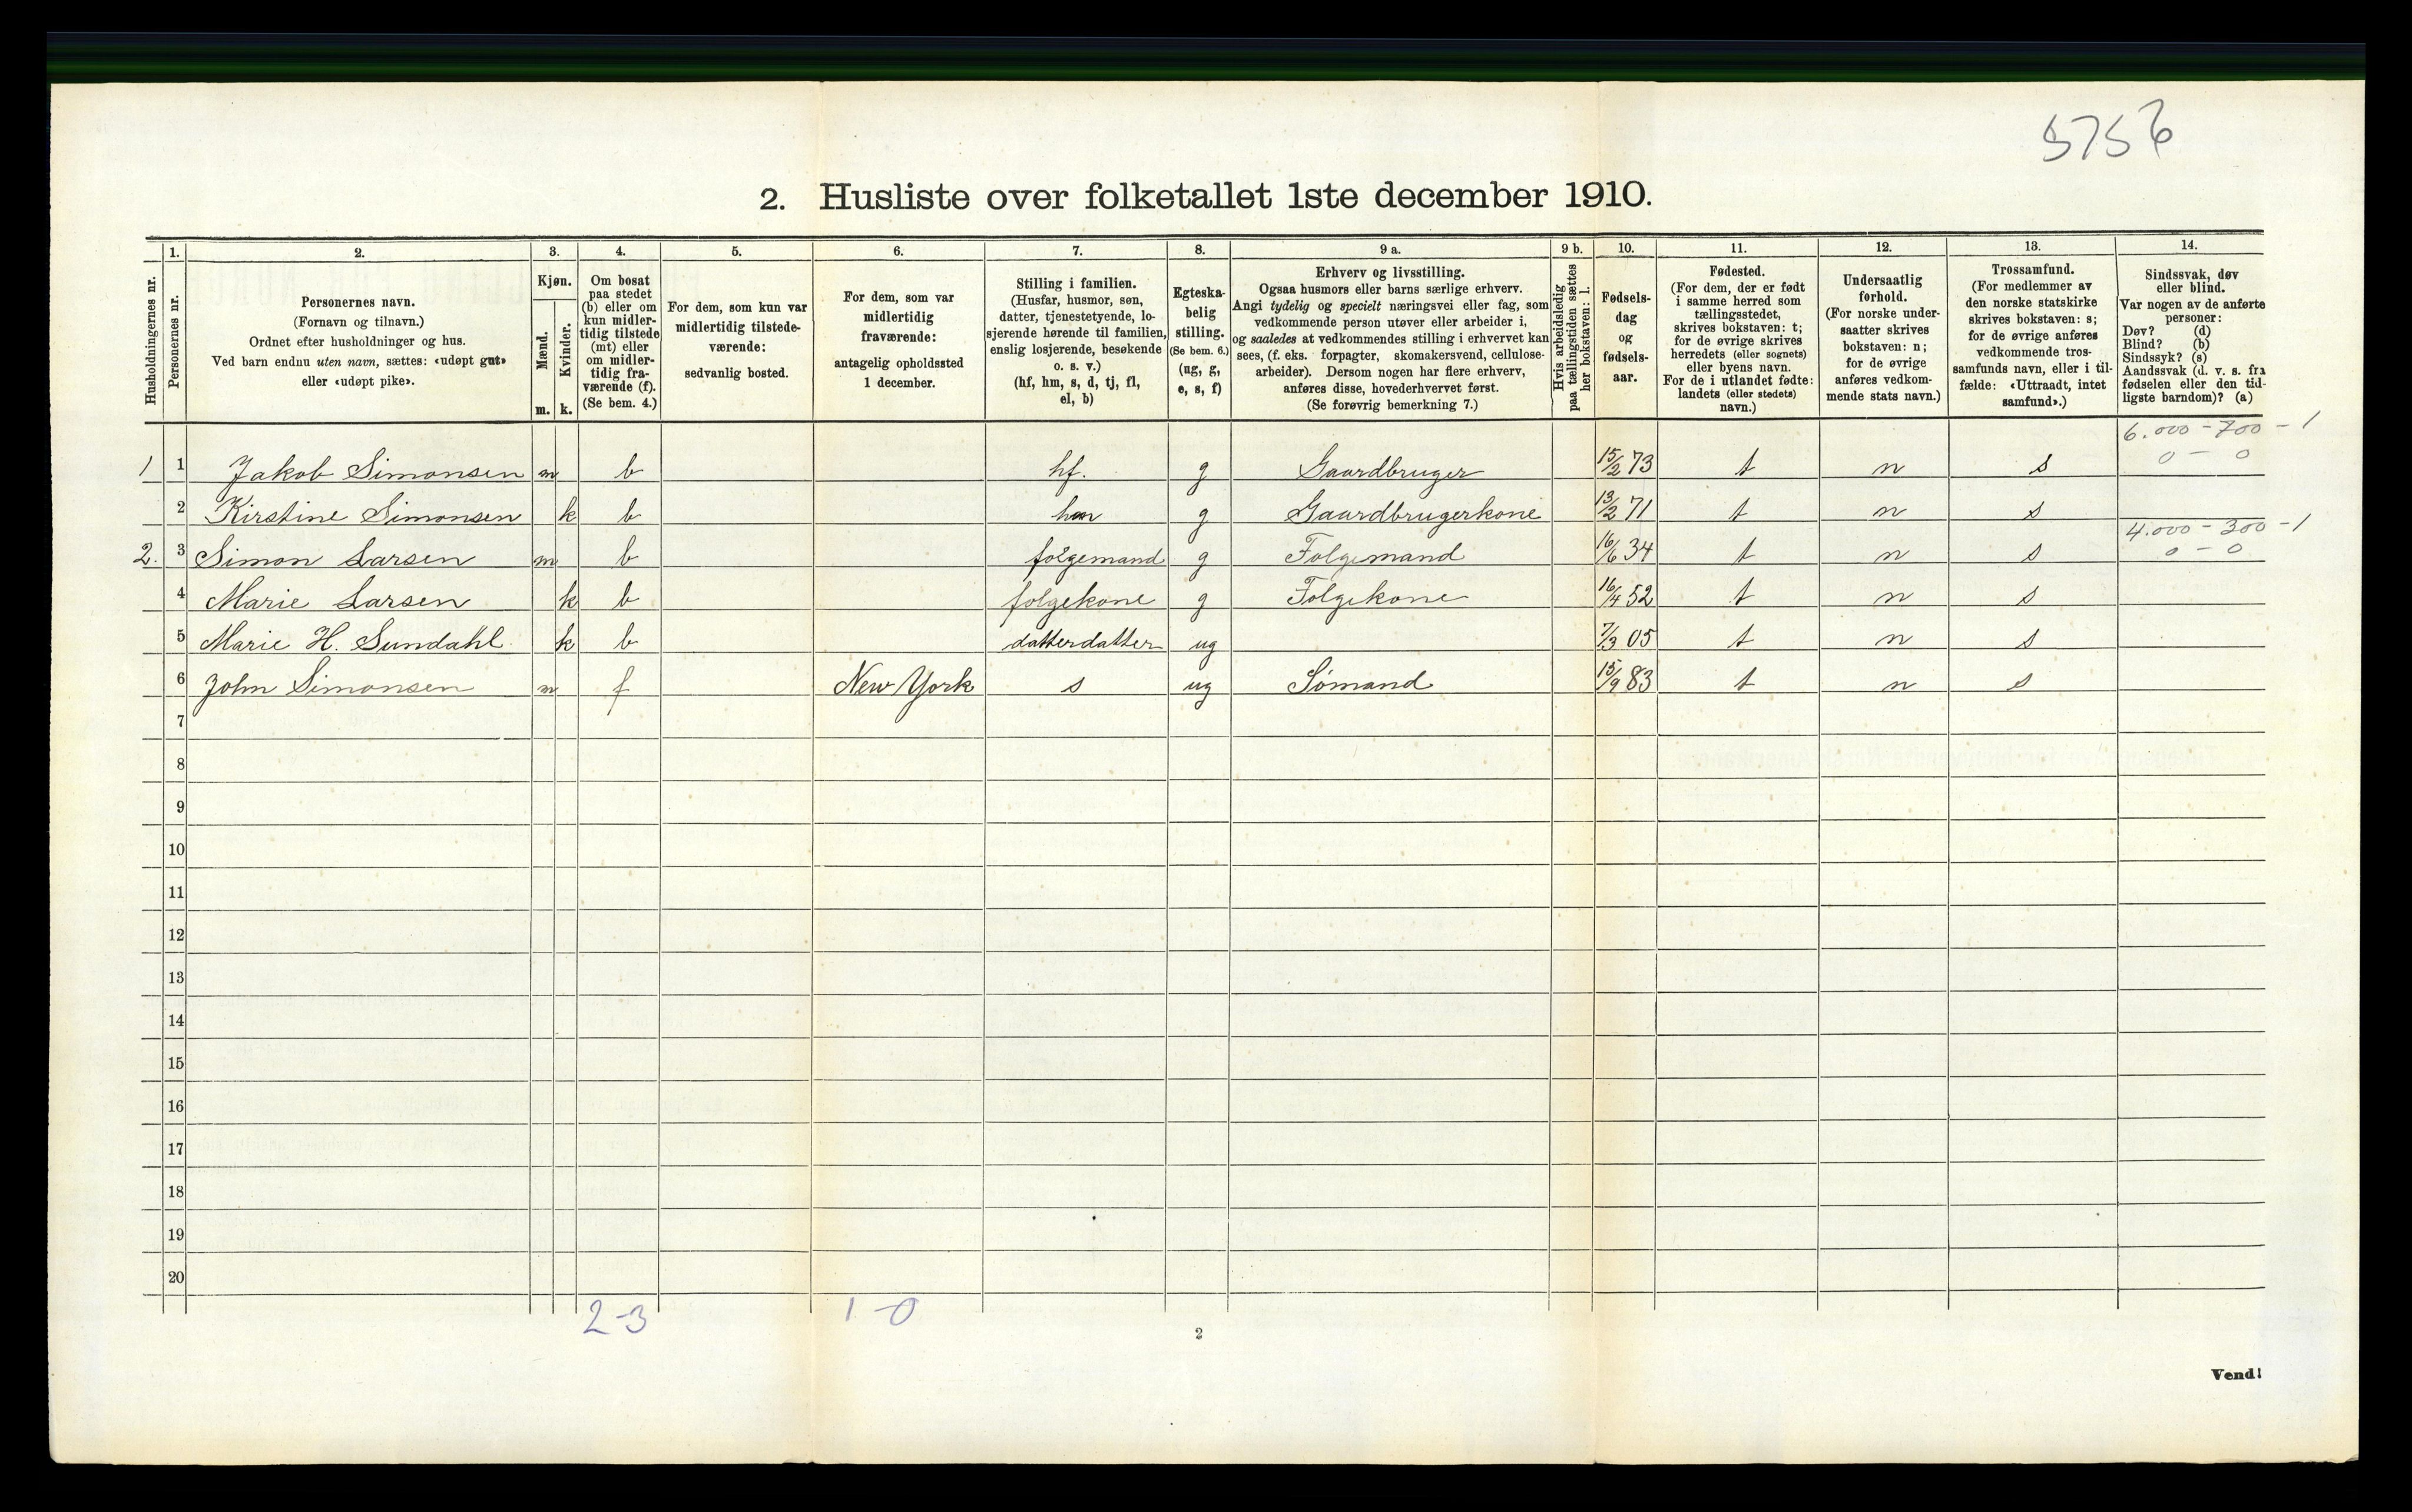 5756
2. Husliste over folketallet 1ste december 1910.
Husholdningernes nr.
1. Personernes nr.
2. Personernes navn. (Fornavn og tilnavn.) Ordnet efter husholdninger og hus. Ved barn endnu uten navn, sættes: «udøpt gut» eller «udøpt pike».
3. Kjøn. Mænd. m. Kvinder. k.
4. Om bosat paa stedet (b) eller om kun midlertidig tilstede (mt) eller om midlertidig fraværende (f). (Se bem. 4.)
5. For dem, som kun var midlertidig tilstedeværende: sedvanlig bosted.
6. For dem, som var midlertidig fraværende: antagelig opholdssted 1 december.
7. Stilling i familien. (Husfar, husmor, søn, datter, tjenestetyende, losjerende hørende til familien, enslig losjerende, besøkende o. s. v.) (hf, hm, s, d, tj, fl, el, b)
8. Egteskabelig stilling. (Se bem. 6.) (ug, g, e, s, f)
9 a. Erhverv og livsstilling. Ogsaa husmors eller barns særlige erhverv. Angi tydelig og specielt næringsvei eller fag, som vedkommende person utøver eller arbeider i, og saaledes at vedkommendes stilling i erhvervet kan sees, (f. eks. forpagter, skomakersvend, cellulosearbeider). Dersom nogen har flere erhverv, anføres disse, hovederhvervet først. (Se forøvrig bemerkning 7.)
9 b. Hvis arbeidsledig paa tællingstiden sættes her bokstaven: l.
10. Fødselsdag og fødselsaar.
11. Fødested. (For dem, der er født i samme herred som tællingsstedet, skrives bokstaven: t; for de øvrige skrives herredets (eller sognets) eller byens navn. For de i utlandet fødte: landets (eller stedets) navn.)
12. Undersaatlig forhold. (For norske undersaatter skrives bokstaven: n; for de øvrige anføres vedkommende stats navn.)
13. Trossamfund. (For medlemmer av den norske statskirke skrives bokstaven: s; for de øvrige anføres vedkommende trossamfunds navn, eller i tilfælde: «Uttraadt, intet samfund».)
14. Sindssvak, døv eller blind. Var nogen av de anførte personer: Døv? (d) Blind? (b) Sindssyk? (s) Aandssvak (d. v. s. fra fødselen eller den tidligste barndom)? (a)
6.000 - 700 - 1
1 1 Jakob Simonsen m b hf. g Gaardbruger 15/2 73 t n s 0 - 0
2 Kirstine Simonsen k b hm g Gaardbrugerkone 13/2 71 t n s
4.000 - 300 - 1
2. 3 Simon Larsen m b folgemand g Folgemand 16/6 34 t n s 0 - 0
4 Marie Larsen k b folgekone g Folgekone 16/4 52 t n s
5 Marie H. Sundahl k b datterdatter ug 7/3 05 t n s
6 John Simonsen m f New York s ug Sømand 15/9 83 t n s
7
8
9
10
11
12
13
14
15
16
17
18
19
20
2-3 1-0
2
Vend!